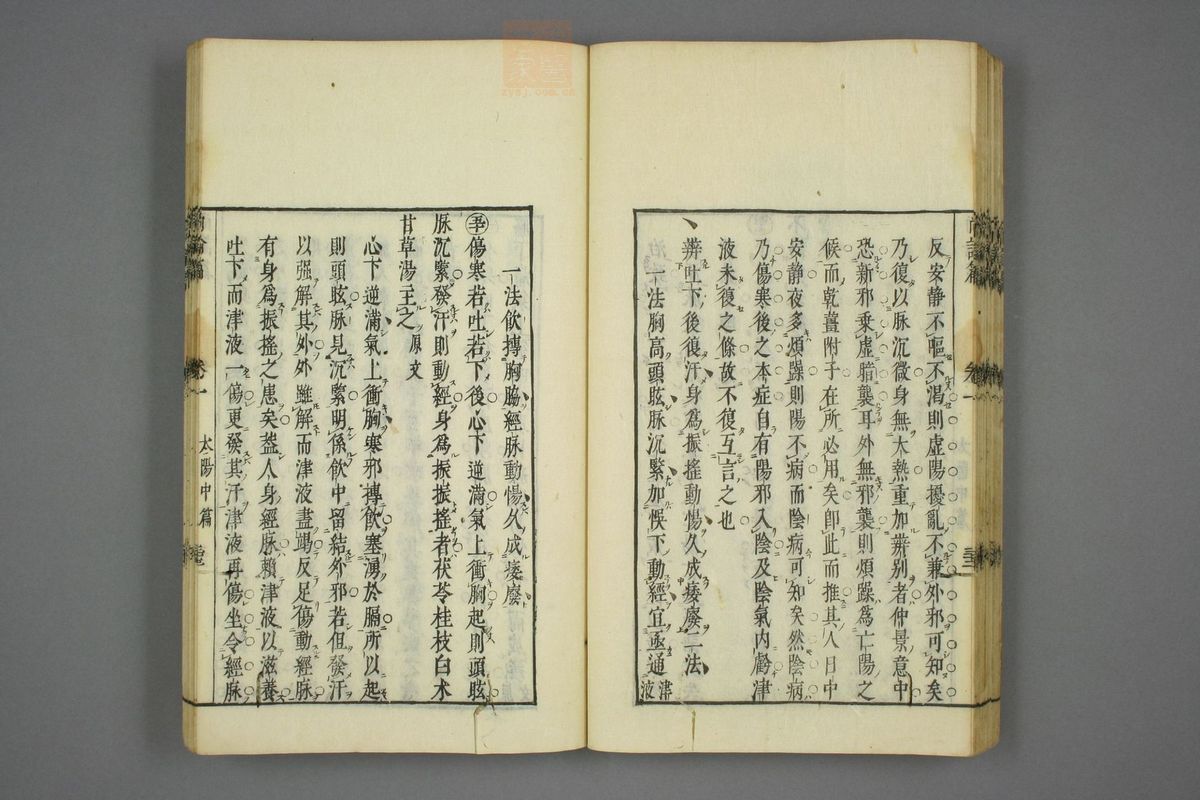 反安靜不嘔不渴則虛陽擾亂不兼外邪可知矣
乃復以脉沉微身無大熱重加辨別者仲景意中
恐新邪乘虛暗襲耳外無邪襲則煩躁爲亡陽之
候而乾薑附子在所必用矣卽此而推其人日中
安靜夜多煩躁則陽不病而陰病可知矣然陰病
乃傷寒後之本症自有陽邪入陰及陰氣內虧津
液未復之條故不復互言之也
辨吐下後復汗身爲振搖動惕久成痿廢二法
一法胸高頭眩脉沉緊加悞下動經宜亟通津液
一法飮搏胸脇經脉動惕久成痿廢
傷寒若吐若下後心下逆滿氣上衝胸起則頭眩
脉沉緊發汗則動經身爲振振搖者茯苓桂枝白术
甘草湯主之 原文
心下逆滿氣上衝胸寒邪搏飮塞湧於膈所以起
則頭眩脉見沉緊明係飮中留結外邪若但發汗
以强解其外外雖解而津液盡竭反足傷動經脉
有身爲振搖之患矣葢人身經脉賴津液以滋養
吐下而津液一傷更發其汗津液再傷坐令經脉
尚論篇
卷一
太陽中篇
zysj.com.cn